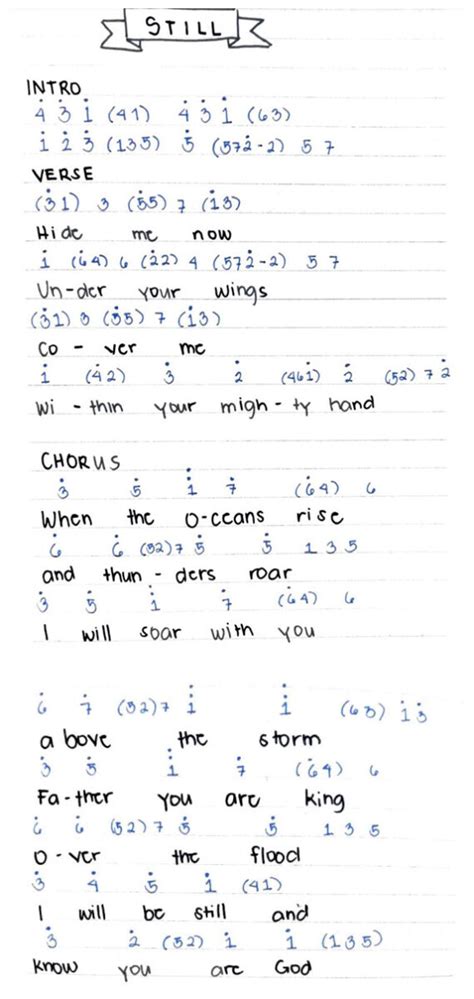 STILL
INTRO
4̇ 3̇ 1̇ (41) 4̇ 3̇ 1̇ (63)
1̇ 2̇ 3̇ (135) 5̇ (572̇-2) 5 7
VERSE
(3̇1) 3 (5̇5) 7 (1̇3)
Hide me now
1̇ (6̇4) 6 (2̇2) 4 (572̇-2) 5 7
Un-der your wings
(3̇1) 3 (5̇5) 7 (1̇3)
Co - ver me
1̇ (4̇2) 3̇ 2̇ (461̇) 2̇ (52) 7 2̇
Wi - thin your migh - ty hand
CHORUS
3̇ 5̇ 1̇̇ 7̇ (6̇4) 6
When the o-ceans rise
6̇ 6̇ (52)7 5̇ 5̇ 1 3 5
and thun - ders roar
3̇ 5̇ 1̇̇ 7̇ (6̇4) 6
I will soar with you
6̇ 7̇ (52)7 1̇̇ 1̇̇ (63) 1̇ 3̇
a bove the storm
3̇ 5̇ 1̇̇ 7̇ (6̇4) 6
Fa-ther you are king
6̇ 6̇ (52) 7 5̇ 5̇ 1 3 5
o - ver the flood
3̇ 4̇ 5̇ 1̇ (41)
I will be still and
3̇ 2̇ (52) 1̇ 1̇ (135)
know you are God